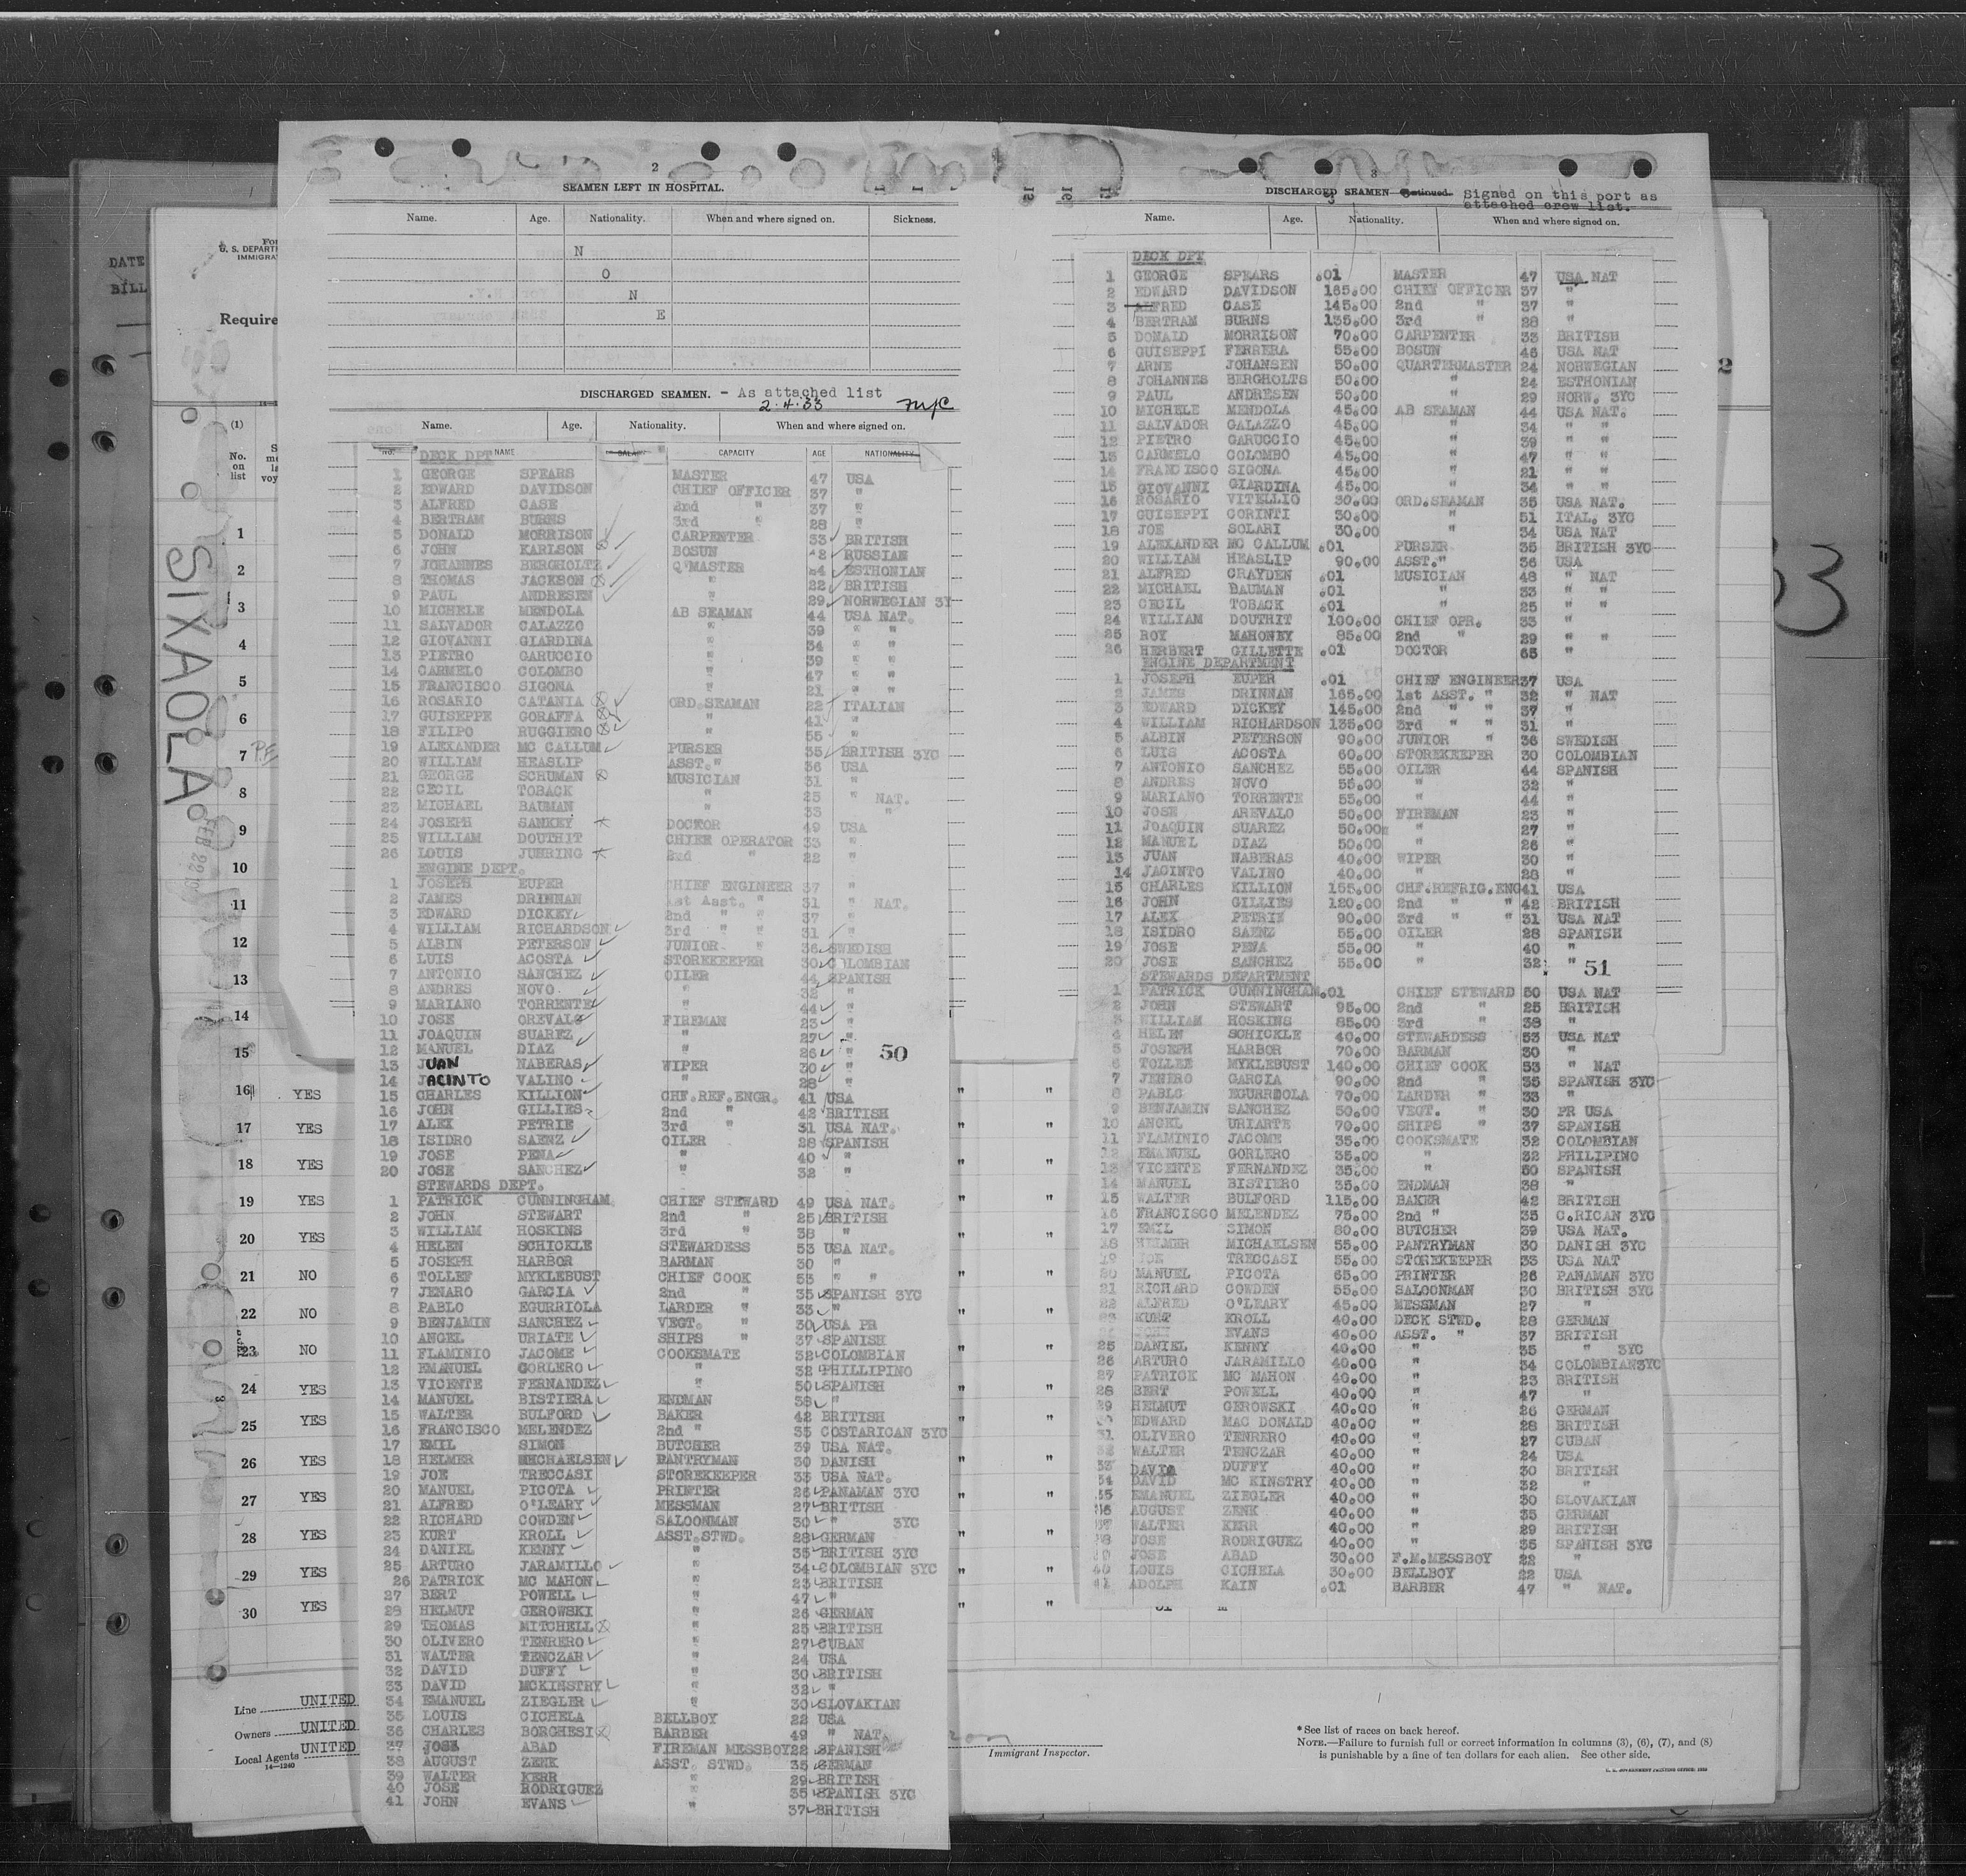 2
SEAMEN LEFT IN HOSPITAL.
Name. Age. Nationality. When and where signed on. Sickness.
N
O
N
E
DISCHARGED SEAMEN. - As attached list
2.4.33
Name. Age. Nationality. When and where signed on.
NO. NAME SALARY CAPACITY AGE NATIONALITY
DECK DPT
1 GEORGE SPEARS MASTER 47 USA
2 EDWARD DAVIDSON CHIEF OFFICER 37 "
3 ALFRED CASE 2nd " 37 "
4 BERTRAM BURNS 3rd " 28 "
5 DONALD MORRISON CARPENTER 33 BRITISH
6 JOHN KARLSON BOSUN RUSSIAN
7 JOHANNES BERGHOLTZ Q'MASTER ESTHONIAN
8 THOMAS JACKSON " 22 BRITISH
9 PAUL ANDRESEN " 29 NORWEGIAN 3Y
10 MICHELE MENDOLA AB SEAMAN 44 USA NAT.
11 SALVADOR CALAZZO " 39 " "
12 GIOVANNI GIARDINA " 34 " "
13 PIETRO GARUCCIO " 39 " "
14 CARMELO COLOMBO " 47 " "
15 FRANCISCO SIGONA " 21 " "
16 ROSARIO CATANIA ORD.SEAMAN 22 ITALIAN
17 GUISEPPE GORAFFA " 41 "
18 FILIPO RUGGIERO " 55 "
19 ALEXANDER MC CALLUM PURSER 35 BRITISH 3YC
20 WILLIAM HEASLIP ASST." 36 USA
21 GEORGE SCHUMAN MUSICIAN 31 "
22 CECIL TOBACK " 25 " NAT.
23 MICHAEL BAUMAN " 33 "
24 JOSEPH SANKEY DOCKOR 49 USA
25 WILLIAM DOUTHIT CHIEF OPERATOR 33 "
26 LOUIS JUHRING 2nd " 22 "
ENGINE DEPT.
1 JOSEPH EUPER CHIEF ENGINEER 37 "
2 JAMES DRINNAN 1st Asst. " 31 " NAT.
3 EDWARD DICKEY 2nd " " 37 "
4 WILLIAM RICHARDSON 3rd " " 31 "
5 ALBIN PETERSON JUNIOR " 36 SWEDISH
6 LUIS ACOSTA STOREKEEPER 30 COLOMBIAN
7 ANTONIO SANCHEZ OILER 44 SPANISH
8 ANDRES NOVO " 32 "
9 MARIANO TORRENTE " 44 "
10 JOSE OREVALO FIREMAN 23 "
11 JOAQUIN SUAREZ " 27 "
12 MANUEL DIAZ " 26 "
50
13 JUAN NABERAS WIPER 30 "
14 JACINTO VALINO " 28 "
15 CHARLES KILLION CHF.REF.ENGR. 41 USA
16 JOHN GILLIES 2nd " 42 BRITISH
17 ALEX PETRIE 3rd " 31 USA NAT.
18 ISIDRO SAENZ OILER 28 SPANISH
19 JOSE PENA " 40 "
20 JOSE SANCHEZ " 32 "
STEWARDS DEPT.
1 PATRICK CUNNINGHAM CHIEF STEWARD 49 USA NAT.
2 JOHN STEWART 2nd " 25 BRITISH
3 WILLIAM HOSKINS 3rd " 38 "
4 HELEN SCHICKLE STEWARDESS 53 USA NAT.
5 JOSEPH HARBOR BARMAN 30 "
6 TOLLEF MYKLEBUST CHIEF COOK 53 " "
7 JENARO GARCIA 2nd " 35 SPANISH 3YC
8 PABLO EGURRIOLA LARDER " 33 "
9 BENJAMIN SANCHEZ VEGT. " 30 USA PR
10 ANGEL URIATE SHIPS " 37 SPANISH
11 FLAMINIO JACOME COOKSMATE 32 COLOMBIAN
12 EMANUEL GORLERO " 32 PHILLIPINO
13 VICENTE FERNANDEZ " 50 SPANISH
14 MANUEL BISTIERA ENDMAN 38 "
15 WALTER BULFORD BAKER 42 BRITISH
16 FRANCISCO MELENDEZ 2nd " 35 COSTARICAN 3YC
17 EMIL SIMON BUTCHER 39 USA NAT.
18 HELMER MICHAELSEN PANTRYMAN 30 DANISH
19 JOE TRECCASI STOREKEEPER 33 USA NAT.
20 MANUEL PICOTA PRINTER 26 PANAMAN 3YC
21 ALFRED O'LEARY MESSMAN 27 BRITISH
22 RICHARD COWDEN SALOONMAN 30 " 3YC
23 KURT KROLL ASST.STWD. 28 GERMAN
24 DANIEL KENNY " 35 BRITISH 3YC
25 ARTURO JARAMILLO " 34 COLOMBIAN 3YC
26 PATRICK MC MAHON " 23 BRITISH
27 BERT POWELL " 47 "
28 HELMUT GEROWSKI " 26 GERMAN
29 THOMAS MITCHELL " 25 BRITISH
30 OLIVERO TENRERO " 27 CUBAN
31 WALTER TENCZAR " 24 USA
32 DAVID DUFFY " 30 BRITISH
33 DAVID MCKINSTRY " 32 "
34 EMANUEL ZIEGLER " 30 SLOVAKIAN
35 LOUIS CICHELA BELLBOY 22 USA
36 CHARLES BORGHESI BARBER 49 " NAT.
37 JOSE ABAD FIREMAN MESSBOY 22 SPANISH
38 AUGUST ZENK ASST. STWD. 35 GERMAN
39 WALTER KERR " 29 BRITISH
40 JOSE RODRIGUEZ " 35 SPANISH 3YC
41 JOHN EVANS " 37 BRITISH
3
DISCHARGED SEAMEN Continued. Signed on this port as
attached crew list.
Name. Age. Nationality. When and where signed on.
DECK DPT
1 GEORGE SPEARS .01 MASTER 47 USA NAT
2 EDWARD DAVIDSON 165.00 CHIEF OFFICER 37 "
3 ALFRED CASE 145.00 2nd " 37 "
4 BERTRAM BURNS 135.00 3rd " 28 "
5 DONALD MORRISON 70.00 CARPENTER 33 BRITISH
6 GUISEPPI FERRERA 55.00 BOSUN 46 USA NAT
7 ARNE JOHANSEN 50.00 QUARTERMASTER 24 NORWEGIAN
8 JOHANNES BERGHOLTS 50.00 " 24 ESTHONIAN
9 PAUL ANDRESEN 50.00 " 29 NORW. 3YC
10 MICHELE MENDOLA 45.00 AB SEAMAN 44 USA NAT.
11 SALVADOR GALAZZO 45.00 " 34 " "
12 PIETRO GARUCCIO 45.00 " 39 " "
13 CARMELO COLOMBO 45.00 " 47 " "
14 FRANCISCO SIGONA 45.00 " 21 " "
15 GIOVANNI GIARDINA 45.00 " 34 " "
16 ROSARIO VITELLIO 30.00 ORD.SEAMAN 35 USA NAT.
17 GUISEPPI CORINTI 30.00 " 51 ITAL. 3YC
18 JOE SOLARI 30.00 " 34 USA NAT
19 ALEXANDER MC CALLUM .01 PURSER 35 BRITISH 3YC
20 WILLIAM HEASLIP 90.00 ASST." 36 USA
21 ALFRED CRAYDEN .01 MUSICIAN 48 " NAT
22 MICHAEL BAUMAN .01 " 33 " "
23 CECIL TOBACK .01 " 25 " "
24 WILLIAM DOUTHIT 100.00 CHIEF OPR. 33 "
25 ROY MAHONEY 85.00 2nd " 29 " "
26 HERBERT GILLETTE .01 DOCTOR 65 "
ENGINE DEPARTMENT
1 JOSEPH EUPER .01 CHIEF ENGINEER 37 USA
2 JAMES DRINNAN 165.00 1st ASST. " 32 " NAT
3 EDWARD DICKEY 145.00 2nd " " 37 "
4 WILLIAM RICHARDSON 135.00 3rd " " 31 "
5 ALBIN PETERSON 90.00 JUNIOR " 36 SWEDISH
6 LUIS ACOSTA 60.00 STOREKEEPER 30 COLOMBIAN
7 ANTONIO SANCHEZ 55.00 OILER 44 SPANISH
8 ANDRES NOVO 55.00 " 32 "
9 MARIANO TORRENTE 55.00 " 44 "
10 JOSE AREVALO 50.00 FIREMAN 23 "
11 JOAQUIN SUAREZ 50.00 " 27 "
12 MANUEL DIAZ 50.00 " 26 "
13 JUAN NABERAS 40.00 WIPER 30 "
14 JACINTO VALINO 40.00 " 28 "
15 CHARLES KILLION 155.00 CHF.REFRIG.ENG 41 USA
16 JOHN GILLIES 120.00 2nd " " 42 BRITISH
17 ALEX PETRIE 90.00 3rd " " 31 USA NAT
18 ISIDRO SAENZ 55.00 OILER 28 SPANISH
19 JOSE PENA 55.00 " 40 "
20 JOSE SANCHEZ 55.00 " 32 "
51
STEWARDS DEPARTMENT
1 PATRICK CUNNINGHAM .01 CHIEF STEWARD 50 USA NAT
2 JOHN STEWART 95.00 2nd " 25 BRITISH
3 WILLIAM HOSKINS 85.00 3rd " 38 "
4 HELEN SCHICKLE 40.00 STEWARDESS 53 USA NAT
5 JOSEPH HARBOR 70.00 BARMAN 30 "
6 TOLLEF MYKLEBUST 140.00 CHIEF COOK 53 " NAT
7 JENERO GARCIA 90.00 2nd " 35 SPANISH 3YC
8 PABLO EGURREOLA 70.00 LARDER " 33 "
9 BENJAMIN SANCHEZ 50.00 VEGT. " 30 PR USA
10 ANGEL URIARTE 70.00 SHIPS " 37 SPANISH
11 FLAMINIO JACOME 35.00 COOKSMATE 32 COLOMBIAN
12 EMANUEL GORLERO 35.00 " 32 PHILIPINO
13 VICENTE FERNANDEZ 35.00 " 50 SPANISH
14 MANUEL BISTIERO 35.00 ENDMAN 38 "
15 WALTER BULFORD 115.00 BAKER 42 BRITISH
16 FRANCISCO MELENDEZ 75.00 2nd " 35 C.RICAN 3YC
17 EMIL SIMON 80.00 BUTCHER 39 USA NAT.
18 HELMER MICHAELSEN 55.00 PANTRYMAN 30 DANISH 3YC
19 JOE TRECCASI 55.00 STOREKEEPER 33 USA NAT
20 MANUEL PICOTA 65.00 PRINTER 26 PANAMAN 3YC
21 RICHARD COWDEN 55.00 SALOONMAN 30 BRITISH 3YC
22 ALFRED O'LEARY 45.00 MESSMAN 27 "
23 KURT KROLL 40.00 DECK STWD. 28 GERMAN
JOHN EVANS 40.00 ASST. " 37 BRITISH
25 DANIEL KENNY 40.00 " 35 " 3YC
26 ARTURO JARAMILLO 40.00 " 34 COLOMBIAN3YC
27 PATRICK MC MAHON 40.00 " 23 BRITISH
28 BERT POWELL 40.00 " 47 "
29 HELMUT GEROWSKI 40.00 " 26 GERMAN
30 EDWARD MAC DONALD 40.00 " 28 BRITISH
31 OLIVERO TENRERO 40.00 " 27 CUBAN
32 WALTER TENCZAR 40.00 " 24 USA
33 DAVID DUFFY 40.00 " 30 BRITISH
34 DAVID MC KINSTRY 40.00 " 32 "
35 EMANUEL ZIEGLER 40.00 " 30 SLOVAKIAN
36 AUGUST ZENK 40.00 " 35 GERMAN
37 WALTER KERR 40.00 " 29 BRITISH
38 JOSE RODRIGUEZ 40.00 " 35 SPANISH 3YC
39 JOSE ABAD 30.00 F.M.MESSBOY 22 "
40 LOUIS CICHELA 30.00 BELLBOY 22 USA
41 ADOLPH KAIN .01 BARBER 47 " NAT.
DATE
BILL
U. S. DEPARTM
IMMIGRAT
Require
(1)
No.
on
list
SIXAOLA
FEB 22
1
2
3
4
5
6
7
8
9
10
11
12
13
14
15
16 YES " "
17 YES " "
18 YES " "
19 YES " "
20 YES " "
21 NO " "
22 NO " "
23 NO " "
24 YES " "
25 YES " "
26 YES " "
27 YES " "
28 YES " "
29 YES " "
30 YES " "
Line UNITED
Owners UNITED
Local Agents UNITED
14—1240
Immigrant Inspector.
* See list of races on back hereof.
NOTE.—Failure to furnish full or correct information in columns (3), (6), (7), and (8)
is punishable by a fine of ten dollars for each alien. See other side.